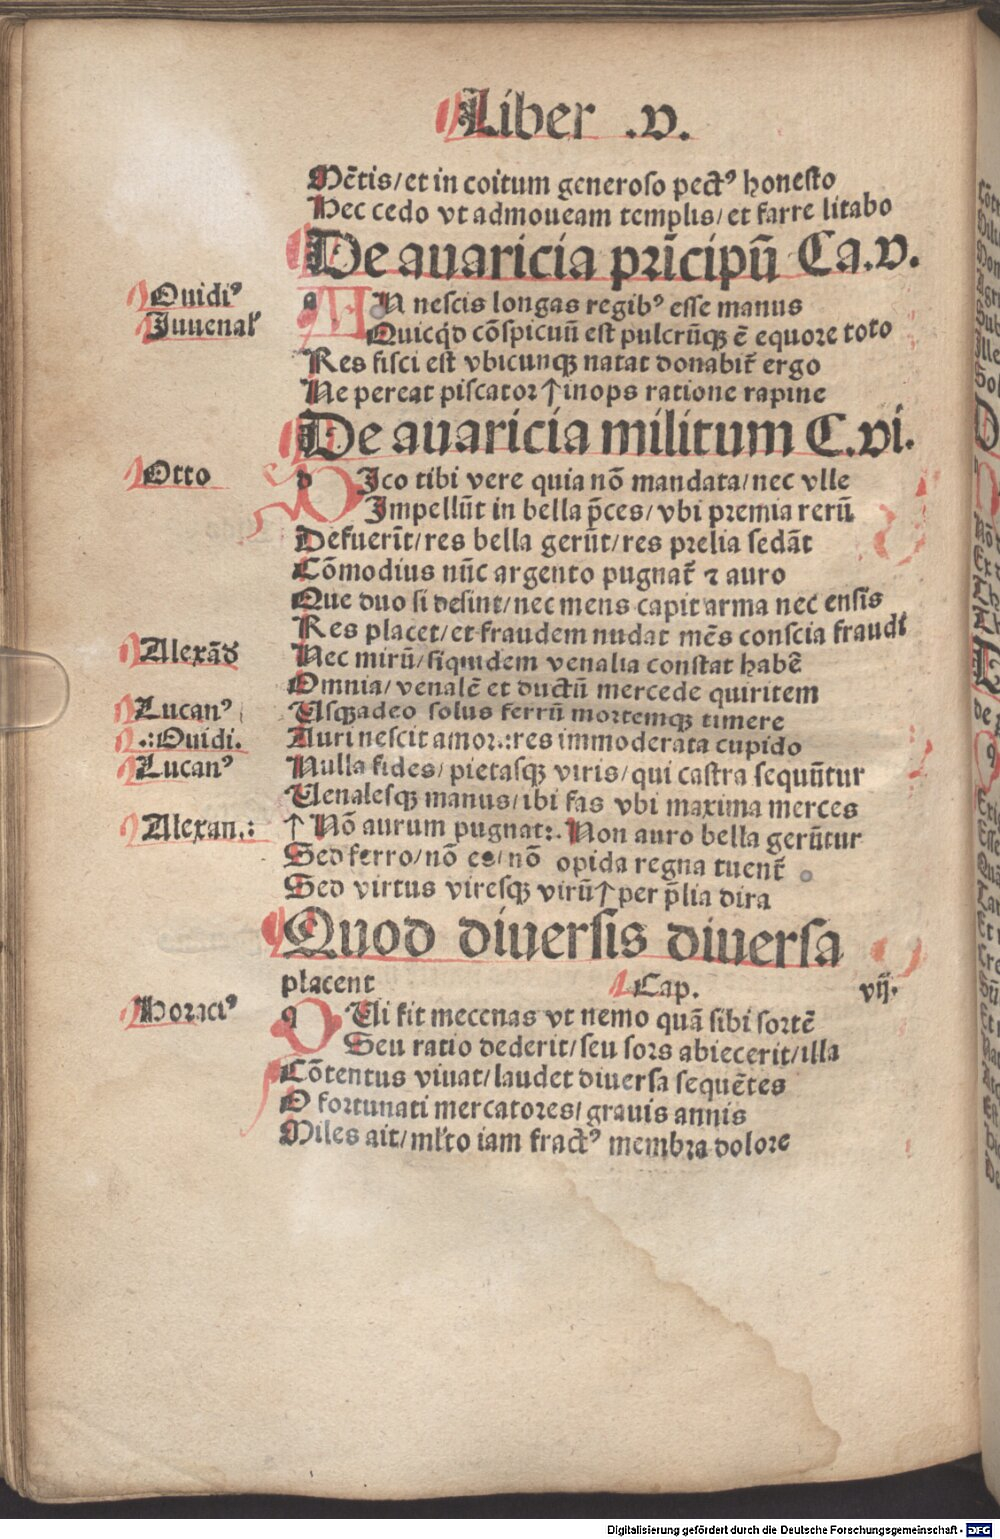 Liber .v.
Mẽtis/et in coitum generoso pectꝰ honesto
Hec cedo vt admoueam templis/et farre litabo
De auaricia prĩcipũ Ca.v.
Ouidiꝰ
AN nescis longas regibꝰ esse manus
Iuuenal̕
Quicqd̕ cõspicuũ est pulcrũqꝫ ẽ equore toto
Res fisci est vbicunqꝫ natat donabit᷑ ergo
Ne pereat piscator ↑ inops ratione rapine
De auaricia militum C.vi.
Otto
DIco tibi vere quia nõ mandata/nec vlle
Impellũt in bella p̄ces/vbi premia rerũ
Defuerĩt/res bella gerũt/res prelia sedãt
Cõmodius nũc argento pugnat᷑ ⁊ auro
Que duo si desint/nec mens capit arma nec ensis
Res placet/et fraudem nudat mẽs conscia fraudi᷑
Alexãd
Nec mirũ/siquidem venalia constat habẽ
Omnia/venalẽ et ductũ mercede quiritem
Lucanꝰ
Usqꝫadeo solus ferrũ mortemqꝫ timere
.:Ouidi.
Auri nescit amor.:res immoderata cupido
Lucanꝰ
Nulla fides/pietasqꝫ viris/qui castra sequũtur
Uenalesqꝫ manus/ibi fas vbi maxima merces
Alexan.:
↑ Nõ aurum pugnat:. Non auro bella gerũtur
Sed ferro/nõ es/nõ opida regna tuent᷑
Sed virtus viresqꝫ virũ↑ per p̄lia dira
Quod diuersis diuersa
placent Cap. vij.
Horaciꝰ
QUi fit mecenas vt nemo quã sibi sortẽ
Seu ratio dederit/seu sors abiecerit/illa
Cõtentus viuat/laudet diuersa sequẽtes
O fortunati mercatores/grauis annis
Miles ait/ml̕to iam fractꝰ membra dolore
Digitalisierung gefördert durch die Deutsche Forschungsgemeinschaft - DFG